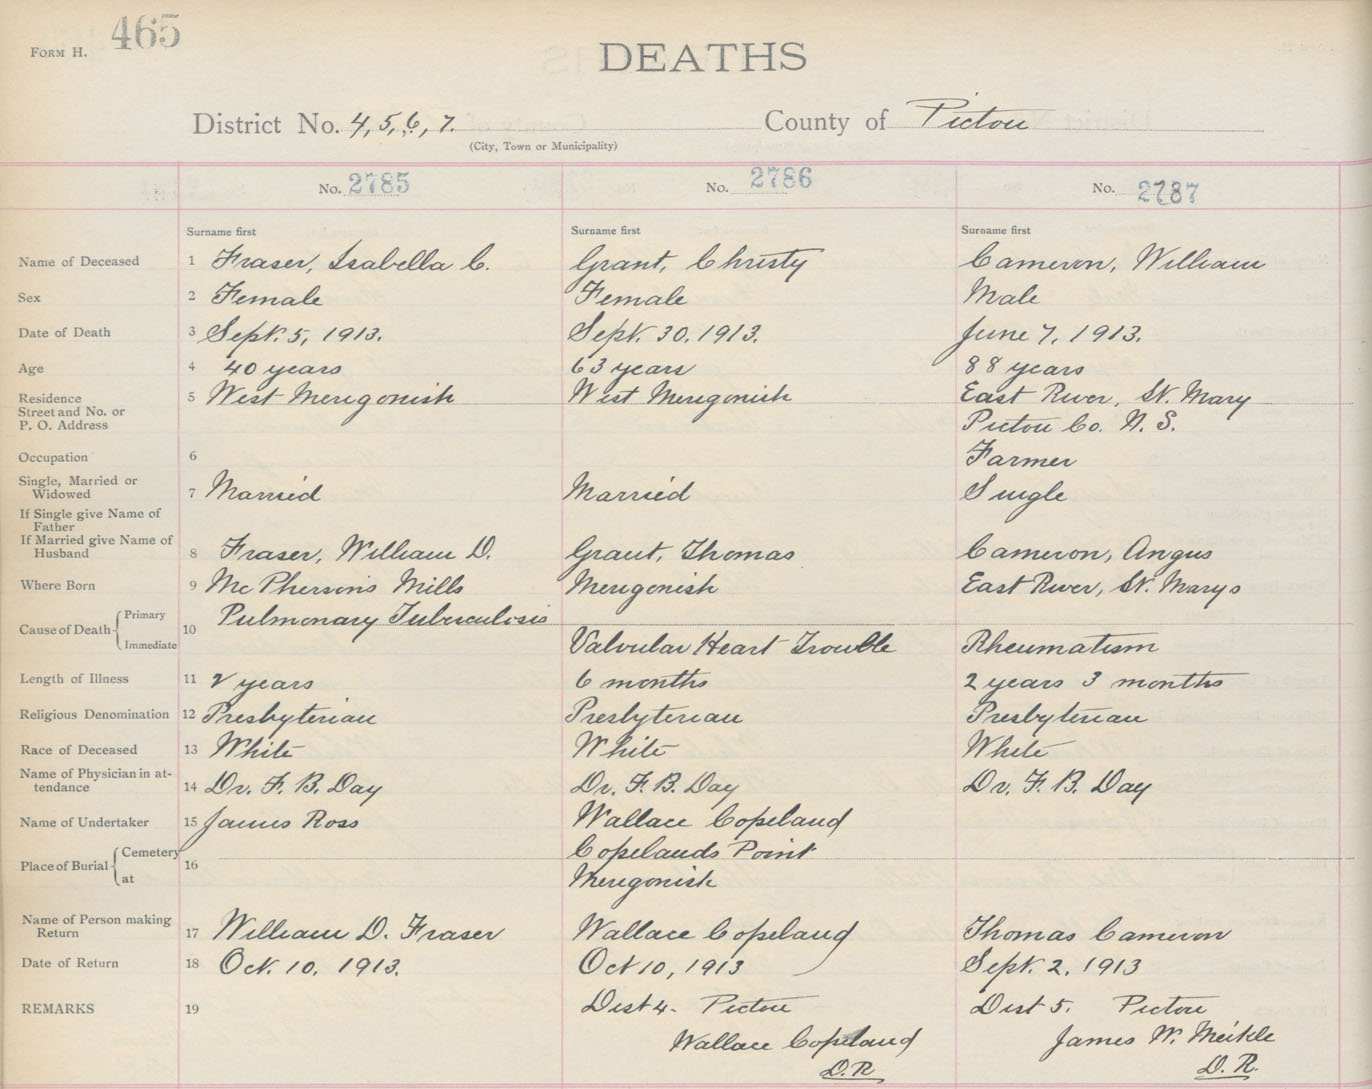 Form H. 465
DEATHS
District No. 4, 5, 6, 7. County of Pictou
(City, Town or Municipality)
No. 2785 No. 2786 No. 2787
Surname first Surname first Surname first
Name of Deceased 1 Fraser, Isabella C. Grant, Christy Cameron, William
Sex 2 Female Female Male
Date of Death 3 Sept. 5, 1913. Sept. 30, 1913. June 7, 1913.
Age 4 40 years 63 years 88 years
Residence 5 West Merigonish West Merigonish East River, St. Mary
Street and No. or
P. O. Address Pictou Co. N. S.
Occupation 6 Farmer
Single, Married or
Widowed 7 Married Married Single
If Single give Name of
Father
If Married give Name of
Husband 8 Fraser, William D. Grant, Thomas Cameron, Angus
Where Born 9 McPherson's Mills Merigonish East River, St. Marys
Cause of Death Primary Pulmonary Tuberculosis
10
Immediate Valvular Heart Trouble Rheumatism
Length of Illness 11 2 years 6 months 2 years 3 months
Religious Denomination 12 Presbyterian Presbyterian Presbyterian
Race of Deceased 13 White White White
Name of Physician in at-
tendance 14 Dr. F. B. Day Dr. F. B. Day Dr. F. B. Day
Name of Undertaker 15 James Ross Wallace Copeland
Place of Burial Cemetery Copelands Point
16
at Merigonish
Name of Person making
Return 17 William D. Fraser Wallace Copeland Thomas Cameron
Date of Return 18 Oct. 10, 1913. Oct 10, 1913 Sept. 2, 1913
REMARKS 19 Dist 4. Pictou Dist 5. Pictou
Wallace Copeland James W. Meikle
D. R. D. R.